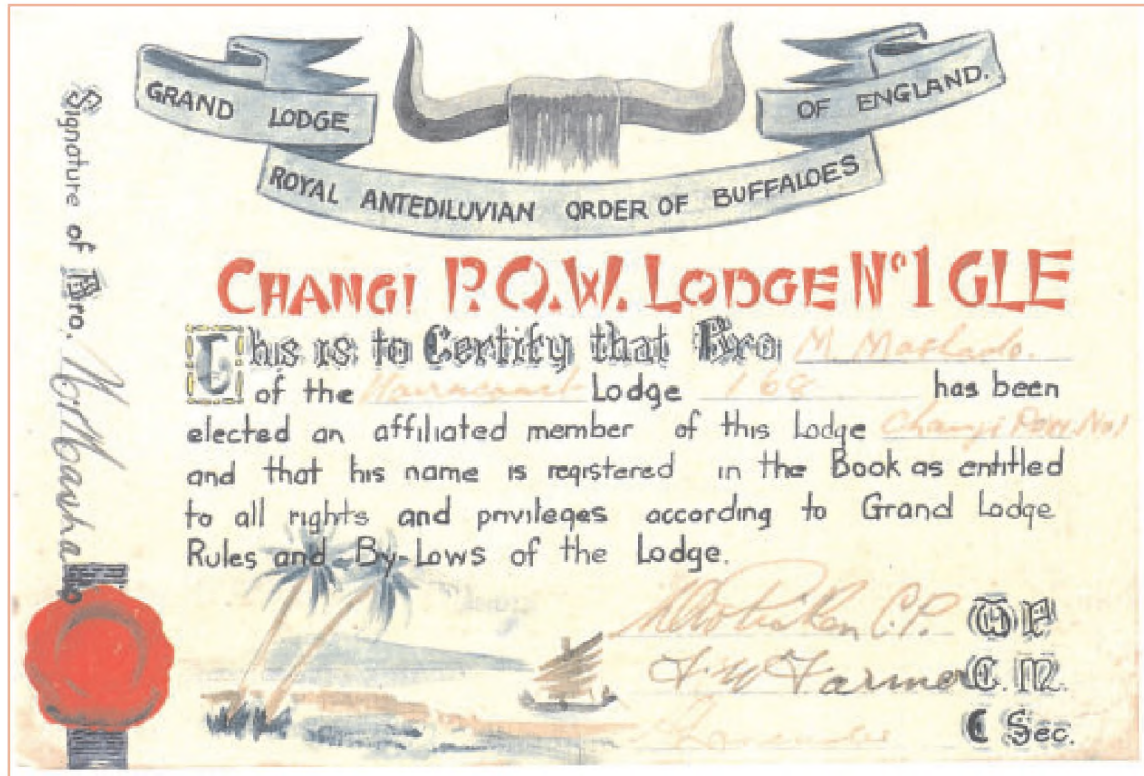 GRAND LODGE OF ENGLAND.
ROYAL ANTEDILUVIAN ORDER OF BUFFALOES
CHANGI P.O.W. LODGE Nº1 GLE
This is to Certify that Bro M.
of the Lodge 168 has been
elected an affiliated member of this Lodge Changi POW. No1
and that his name is registered in the Book as entitled
to all rights and privileges according to Grand Lodge
Rules and By-Laws of the Lodge.
C.P. W P
Farmer C. M.
C Sec.
Signature of Bro.